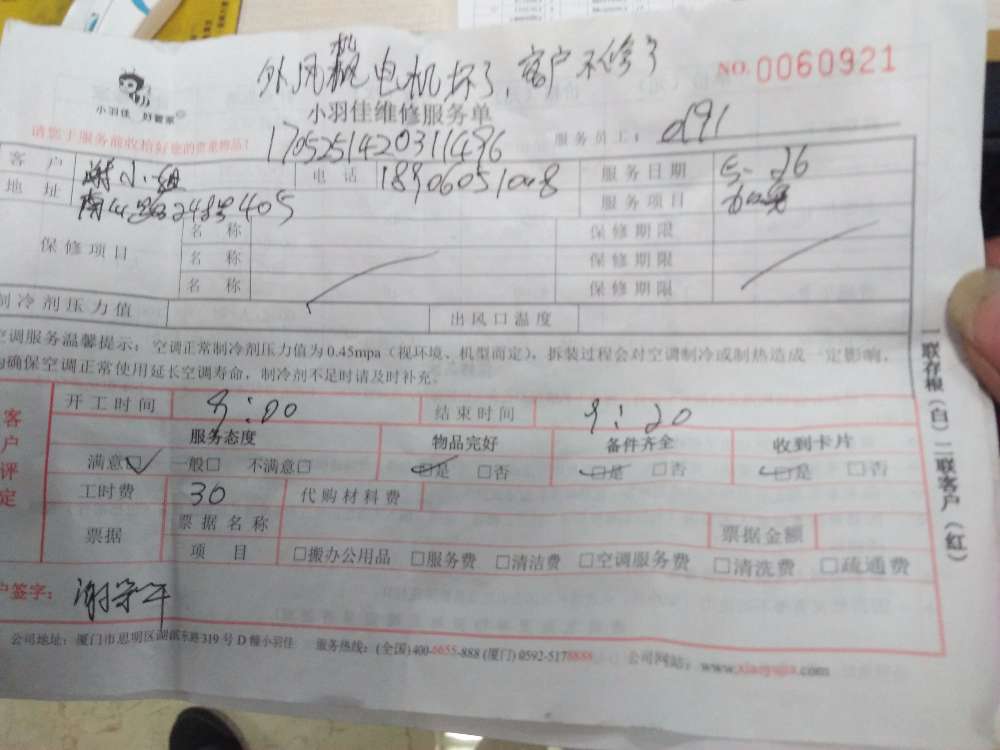 外风机电机坏了，客户不修了
NO.0060921
小羽佳 好管家
小羽佳维修服务单
请您于服务前收拾好您的贵重物品！
1705251420311496
服务员工： d91
客户 谢小姐 电话 18906051048 服务日期 5-26
地址 248号405 服务项目
保修项目 名称 保修期限
名称 保修期限
名称 保修期限
制冷剂压力值 出风口温度
空调服务温馨提示：空调正常制冷剂压力值为0.45mpa（视环境、机型而定），拆装过程会对空调制冷或制热造成一定影响，
为确保空调正常使用延长空调寿命，制冷剂不足时请及时补充。
客户评定
开工时间 9:00 结束时间 9:20
服务态度 物品完好 备件齐全 收到卡片
满意☑ 一般□ 不满意□ ☑是 □否 ☑是 □否 ☑是 □否
工时费 30 代购材料费
票据 票据名称 票据金额
项目 □搬办公用品 □服务费 □清洁费 □空调服务费 □清洗费 □疏通费
户签字：
公司地址：厦门市思明区湖滨东路319号D幢小羽佳 服务热线：(全国)400-6655-888 (厦门)0592-5178888 公司网站：www.xiaoyujia.com
一联存根（白）二联客户（红）